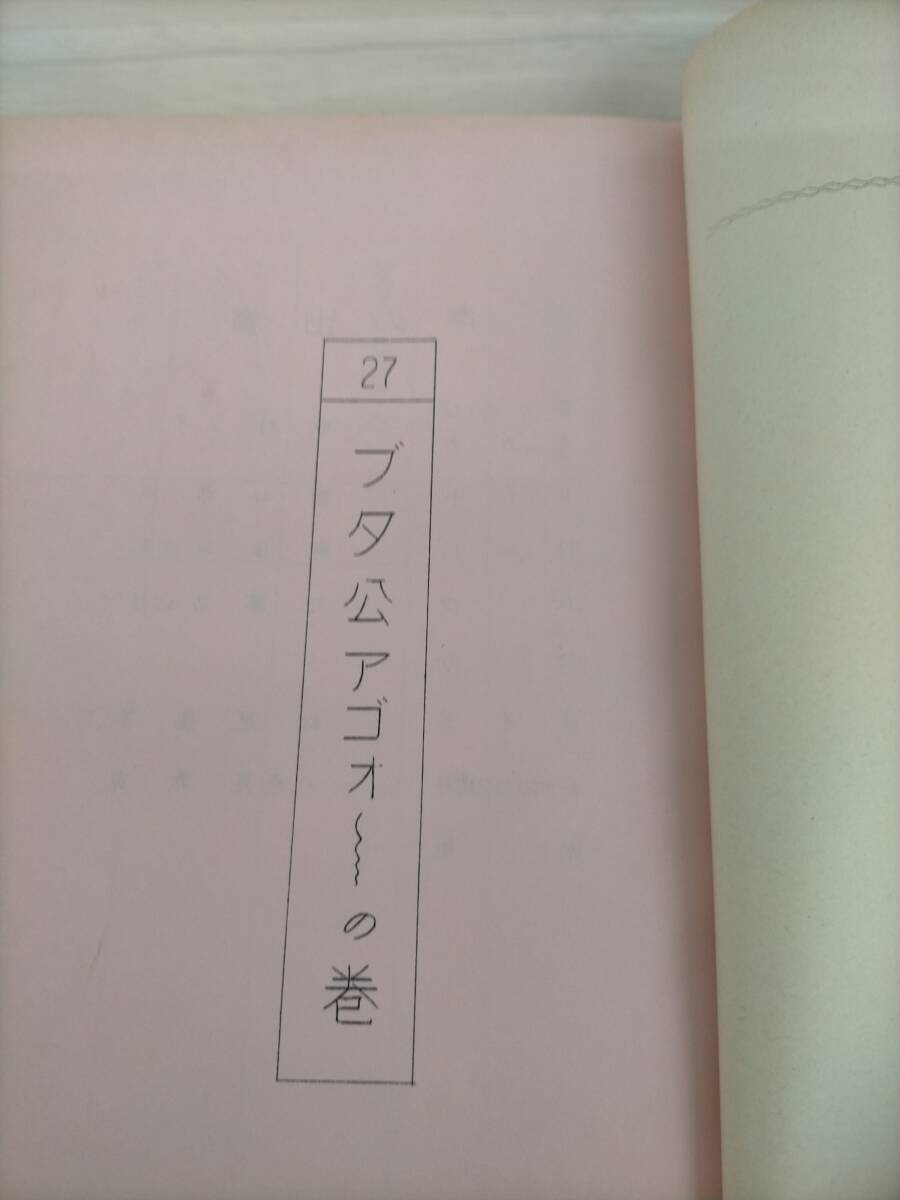 27
ブタ公アゴオ〜〜の巻